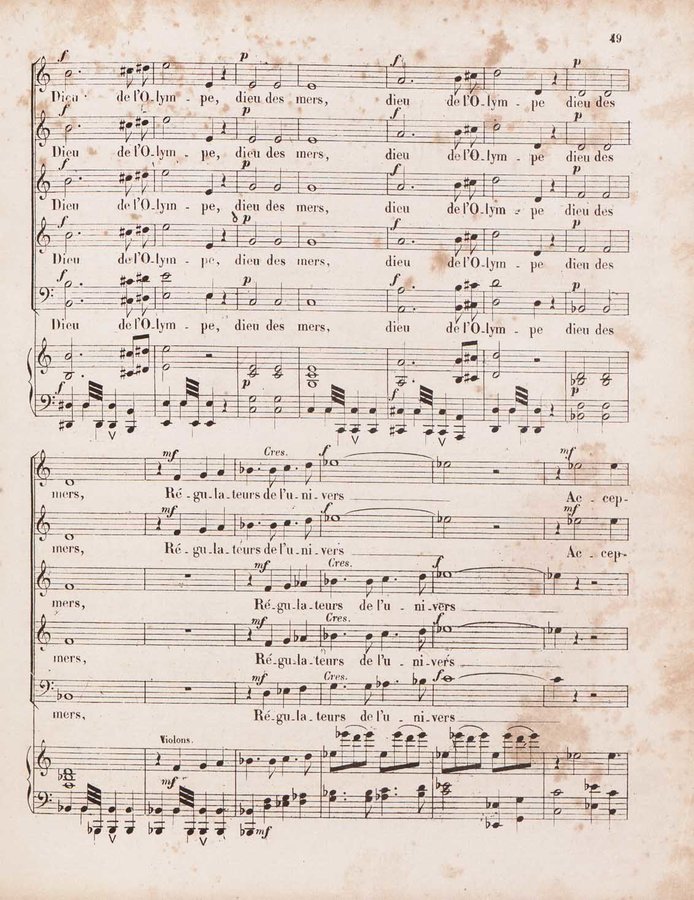 49
f p f p
Dieu de l'O_lym _ pe, dieu des mers, dieu de l'O_lym _ pe dieu des
f p f p
Dieu de l'O_lym _ pe, dieu des mers, dieu de l'O_lym _ pe dieu des
f p f p
Dieu de l'O_lym _ pe, dieu des mers, dieu de l'O_lym _ pe dieu des
f p f p
Dieu de l'O_lym _ pe, dieu des mers, dieu de l'O_lym _ pe dieu des
f p f p
Dieu de l'O_lym _ pe, dieu des mers, dieu de l'O_lym _ pe dieu des
f p f p
mf Cres. f mf
mers, Ré_gu_la_teurs de l'u_ni_vers Ac_cep_
mf f mf
mers, Ré_gu_la_teurs de l'u_ni_vers Ac_cep_
mf Cres. f
mers, Ré_gu_la_teurs de l'u_ni_vers
mf Cres. f
mers, Ré_gu_la_teurs de l'u_ni_vers
mf Cres. f
mers, Ré_gu_la_teurs de l'u_ni_vers
Violons.
mf
mf